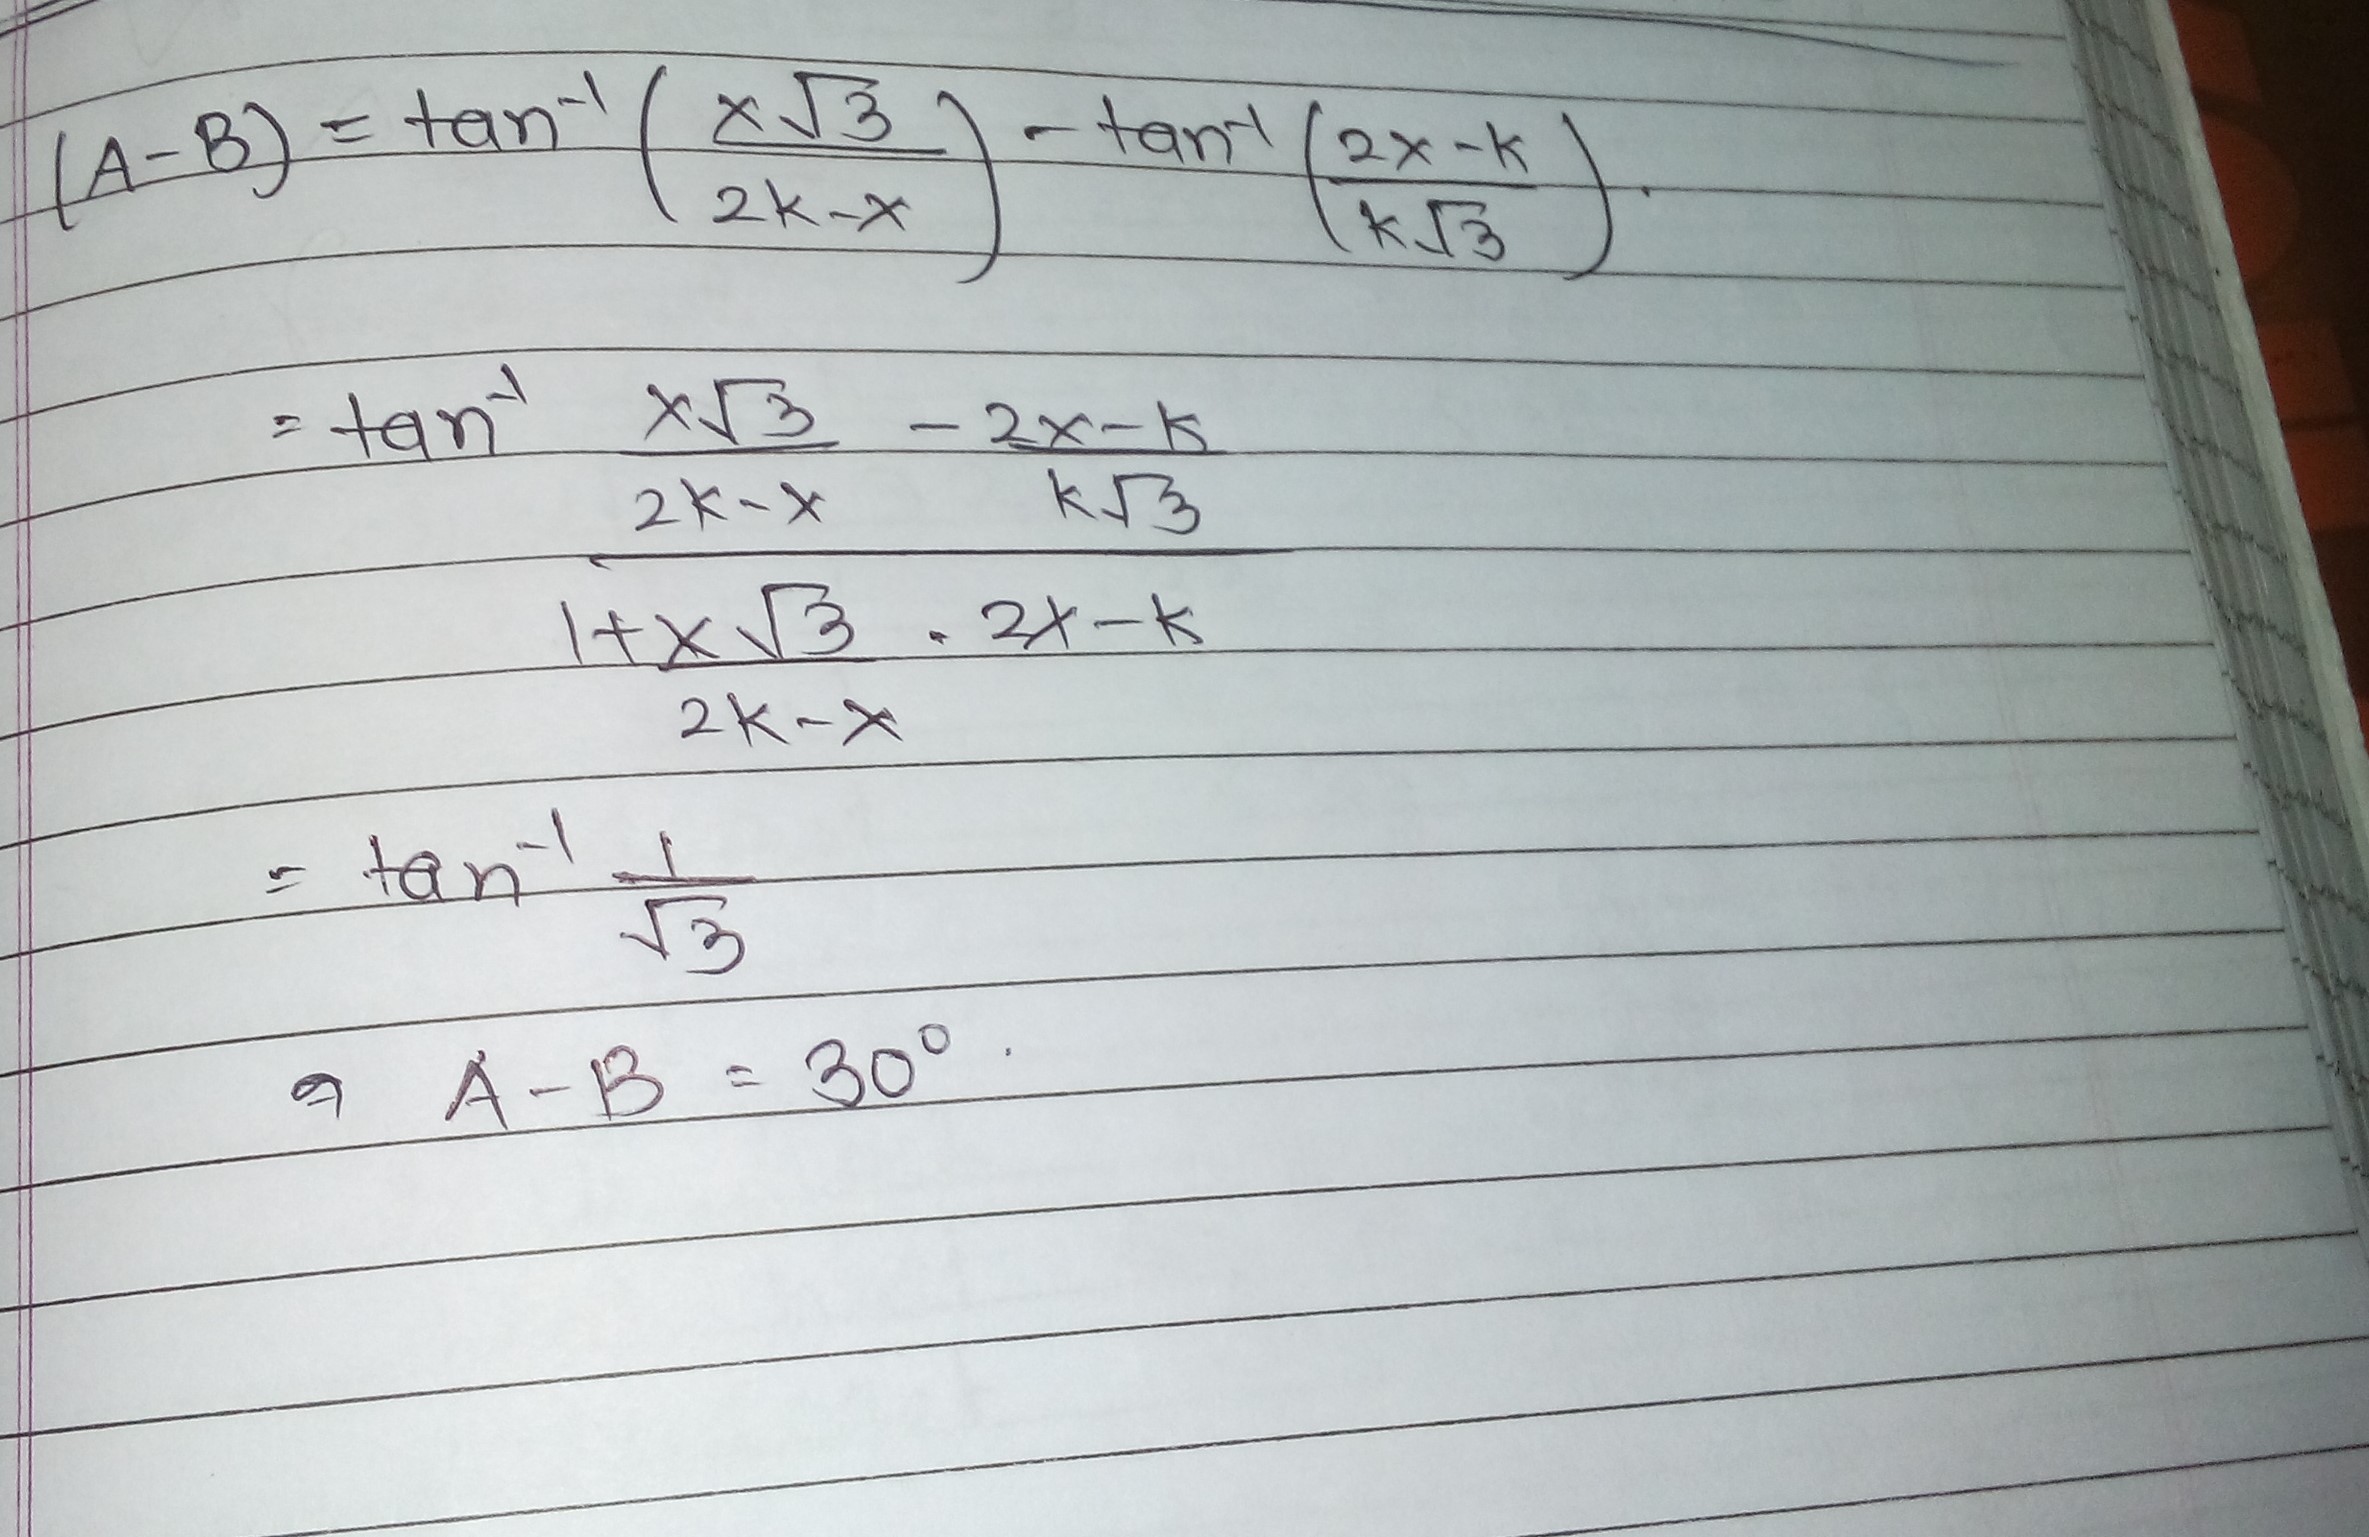 (A-B) = tan⁻¹ (x√3 / 2k-x) - tan⁻¹ (2x-k / k√3).
= tan⁻¹ x√3 - 2x-k
2k-x k√3
1+x√3 . 2x-k
2k-x
= tan⁻¹ 1
√3
⇒ A-B = 30°.